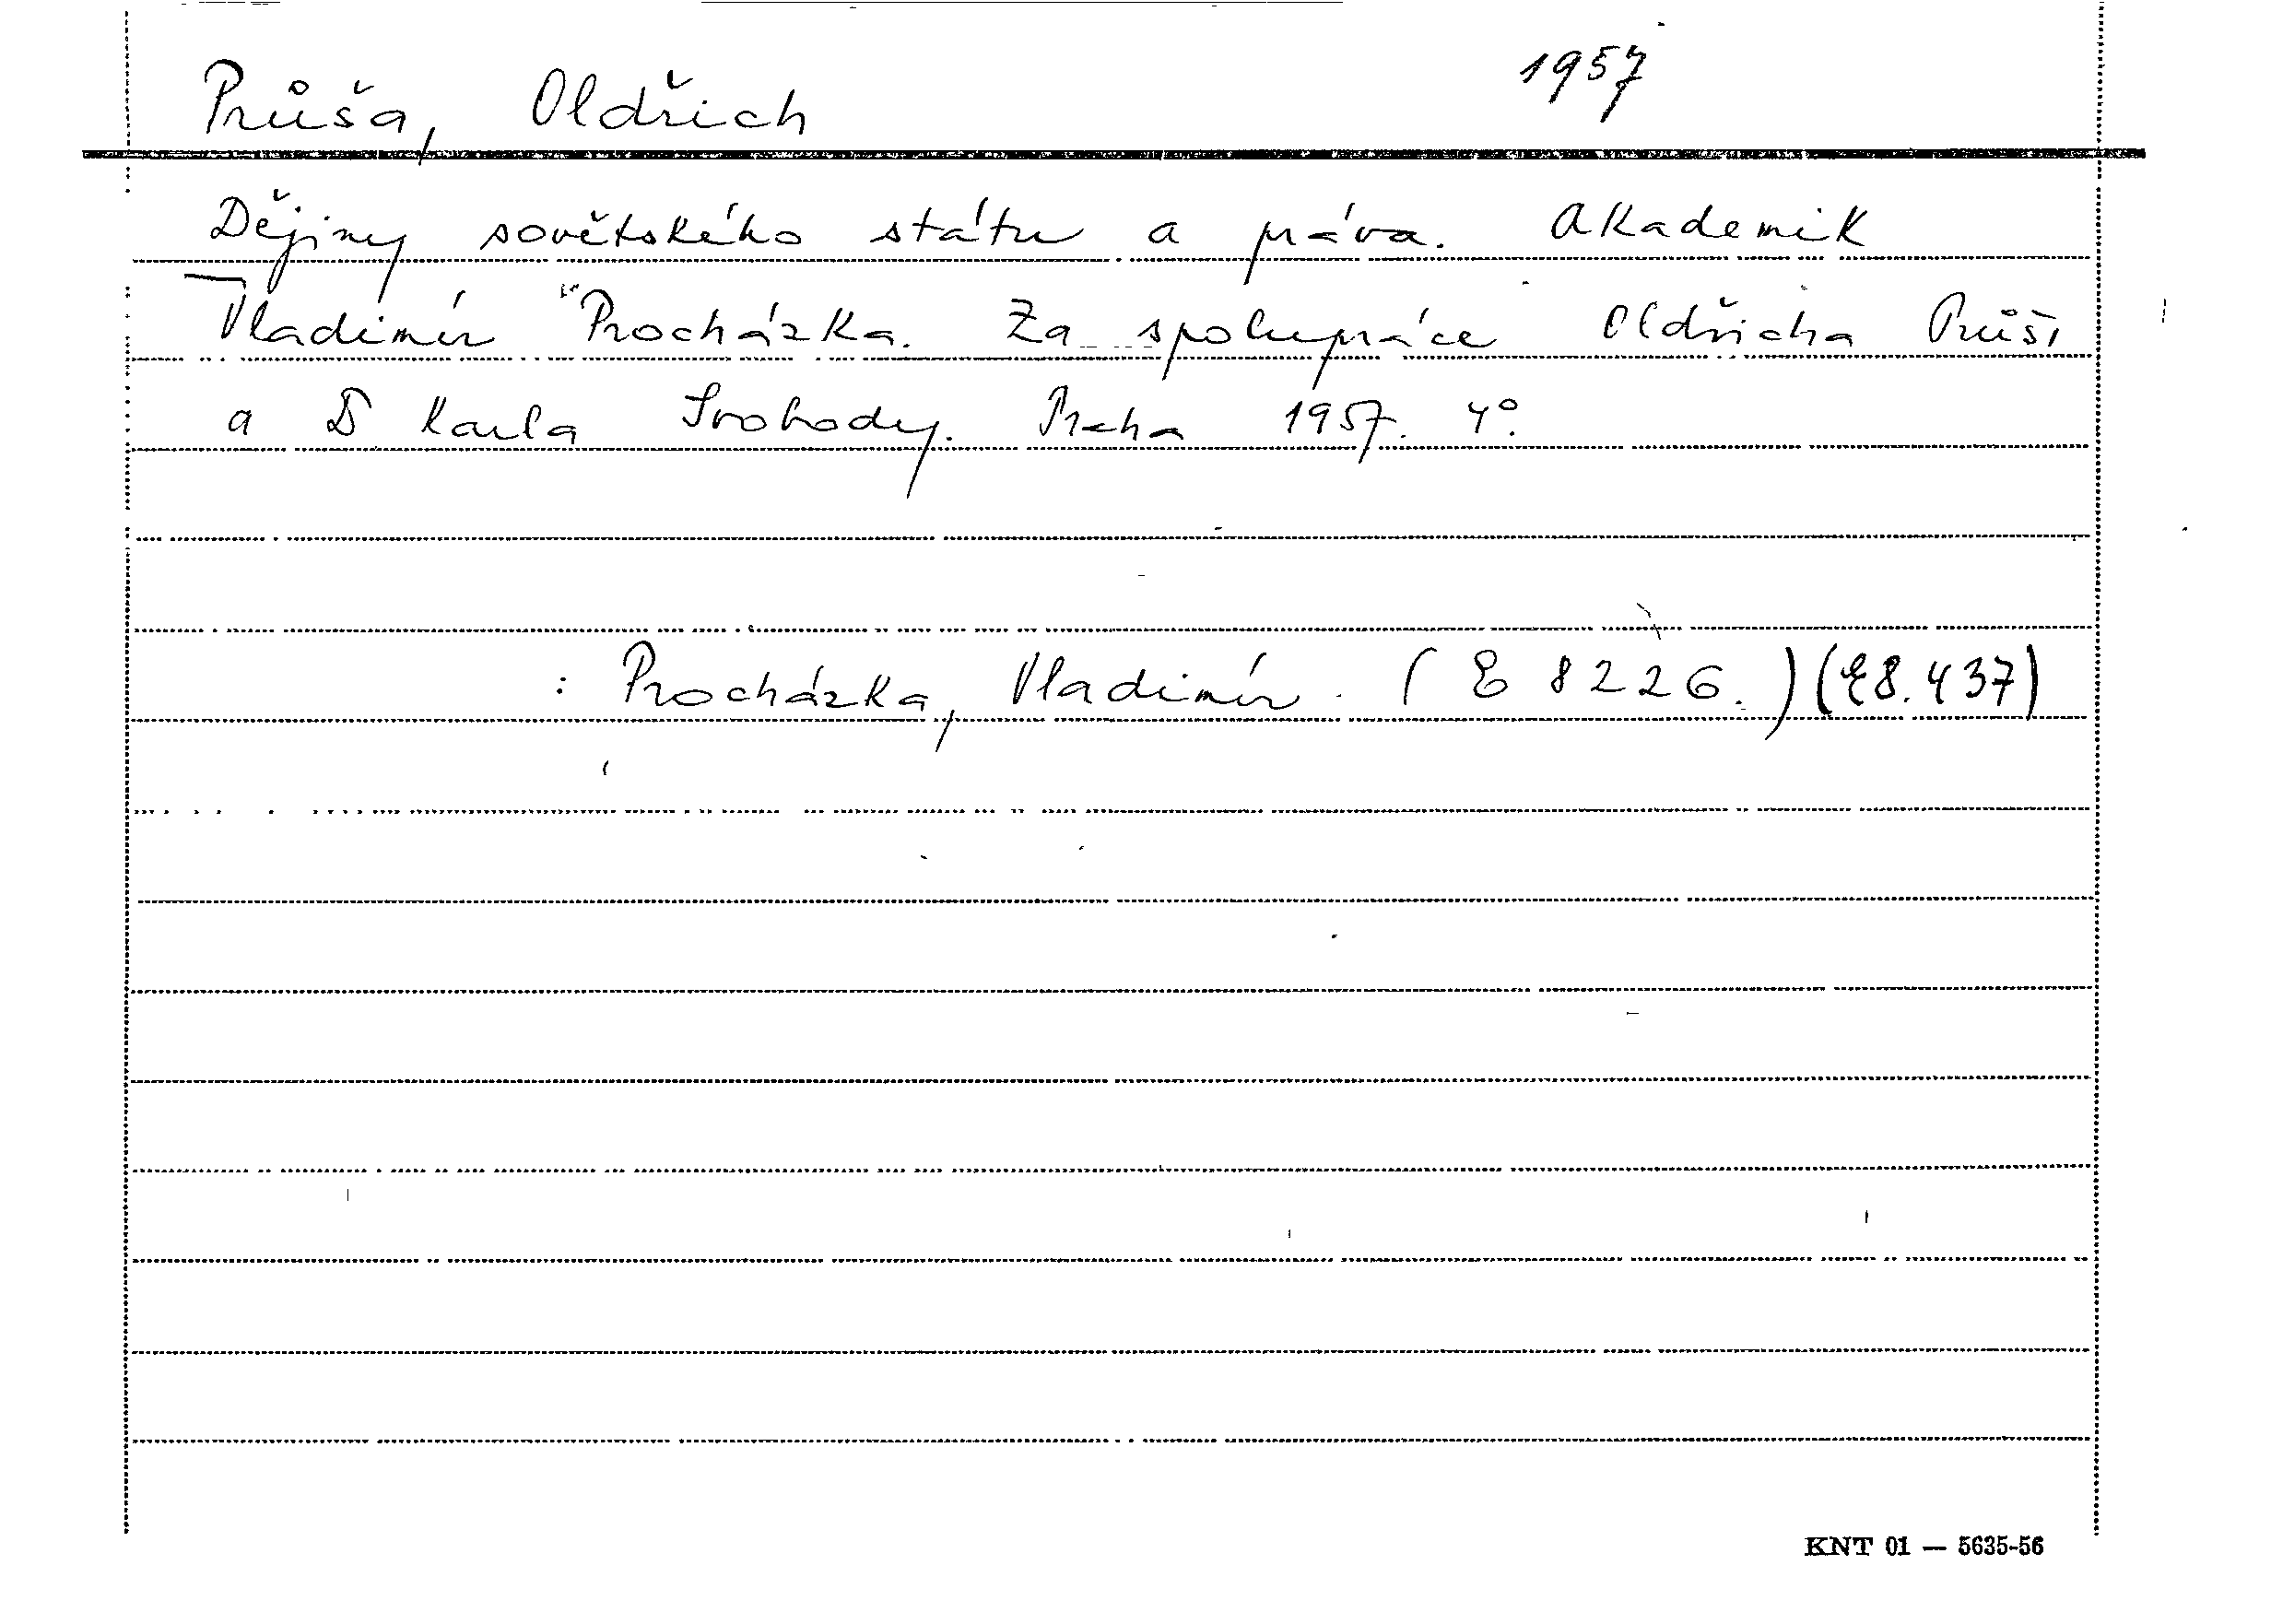 Průša, Oldřich 1957
Dějiny sovětského státu a práva. Akademik
Vladimír Procházka. Za spolupráce Oldřicha Průši
a Dr Karla Svobody. Praha 1957. 4°.
: Procházka, Vladimír. (E 8226.) (E8.437)
KNT 01 — 5635-56